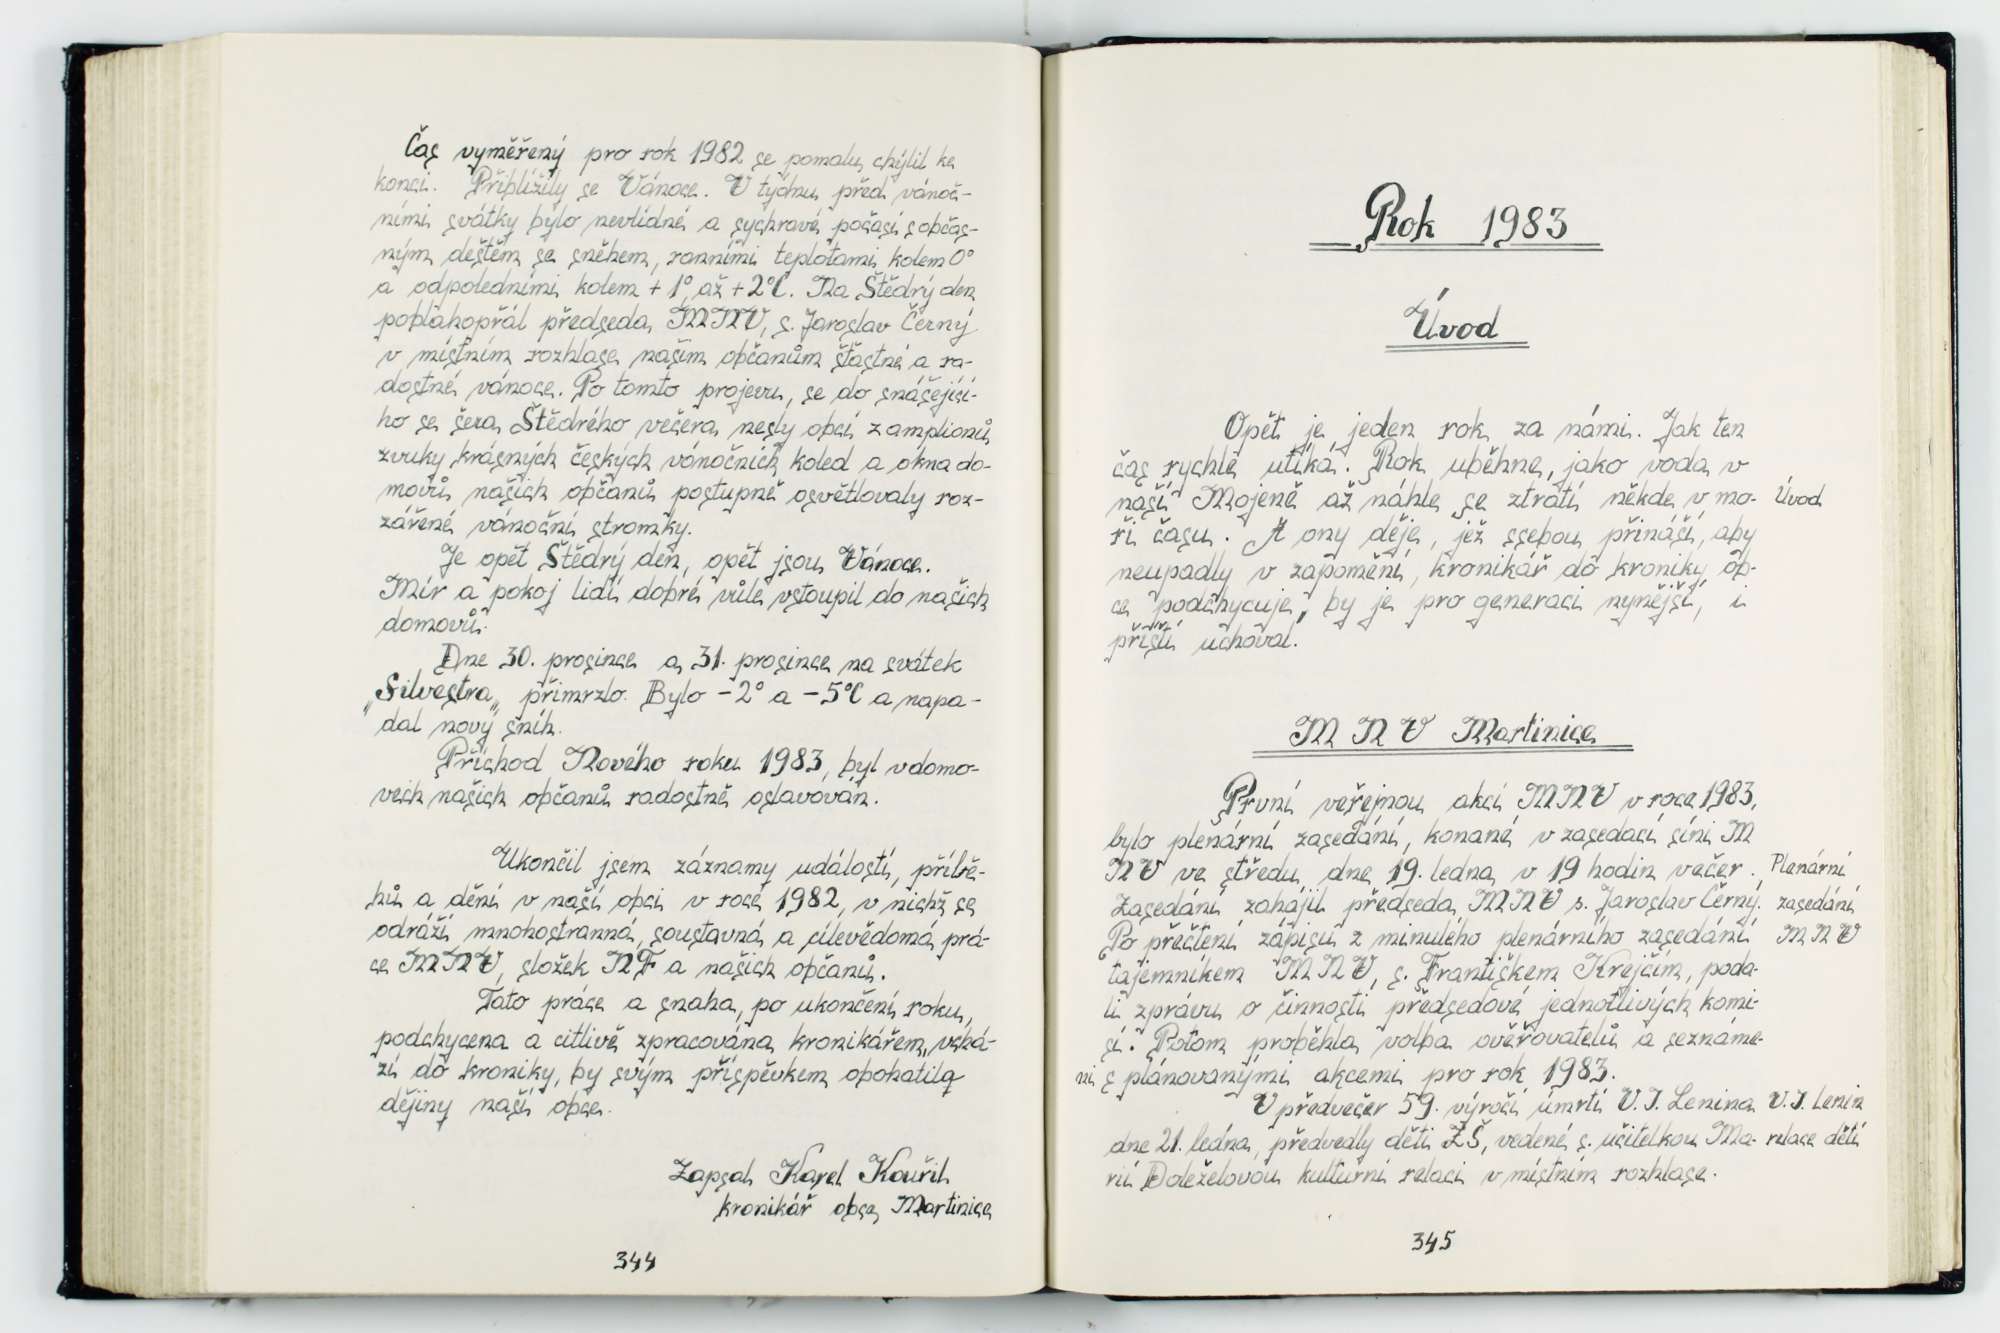 Čas vyměřený pro rok 1982 se pomalu chýlil ke
konci. Přiblížily se Vánoce. V týdnu před vánoč-
ními svátky bylo nevlídné a sychravé počasí s občas-
ným deštěm se sněhem, ranními teplotami kolem 0°
a odpoledními kolem + 1° až + 2°C. Na Štědrý den
poblahopřál předseda MNV, s. Jaroslav Černý
v místním rozhlase našim občanům šťastné a ra-
dostné vánoce. Po tomto projevu, se do snášející-
ho se šera Štědrého večera nesly obcí z amplionů
zvuky krásných českých vánočních koled a okna do-
movů našich občanů postupně osvětlovaly roz-
zářené vánoční stromky.
Je opět Štědrý den, opět jsou Vánoce.
Mír a pokoj lidí dobré vůle vstoupil do našich
domovů.
Dne 30. prosince a 31. prosince na svátek
„Silvestra„ přimrzlo. Bylo - 2° a - 5°C a napa-
dal nový sníh.
Příchod Nového roku 1983, byl v domo-
vech našich občanů radostně oslavován.
Ukončil jsem záznamy událostí, příbě-
hů a dění v naší obci v roce 1982, v nichž se
odráží mnohostranná, soustavná a cílevědomá prá-
ce MNV, složek NF a našich občanů.
Tato práce a snaha, po ukončení roku,
podchycena a citlivě zpracována kronikářem, vchá-
zí do kroniky, by svým příspěvkem obohatila
dějiny naší obce.
Zapsal Karel Kouřil
kronikář obce Martinice
344
Rok 1983
Úvod
Opět je jeden rok za námi. Jak ten
čas rychle utíká. Rok uběhne, jako voda v
naší Mojeně až náhle se ztratí někde v mo- Úvod
ři času. A ony děje, jež ssebou přináší, aby
neupadly v zapomění, kronikář do kroniky ob-
ce podchycuje, by je pro generaci nynější, i
příští uchoval.
M N V Martinice
První veřejnou akcí MNV v roce 1983,
bylo plenární zasedání, konané v zasedací síni M
NV ve středu dne 19. ledna v 19 hodin večer. Plenární
Zasedání zahájil předseda MNV s. Jaroslav Černý. zasedání
Po přečtení zápisu z minulého plenárního zasedání MNV
tajemníkem MNV, s. Františkem Krejčím, poda-
li zprávu o činnosti předsedové jednotlivých komi-
sí. Potom proběhla volba ověřovatelů a seznáme-
ní s plánovanými akcemi pro rok 1983.
V předvečer 59. výročí úmrtí V. I. Lenina V. I. Lenin
dne 21. ledna, předvedly děti ZŠ, vedené s. učitelkou Ma- relace dětí
rií Doleželovou kulturní relaci v místním rozhlase.
345